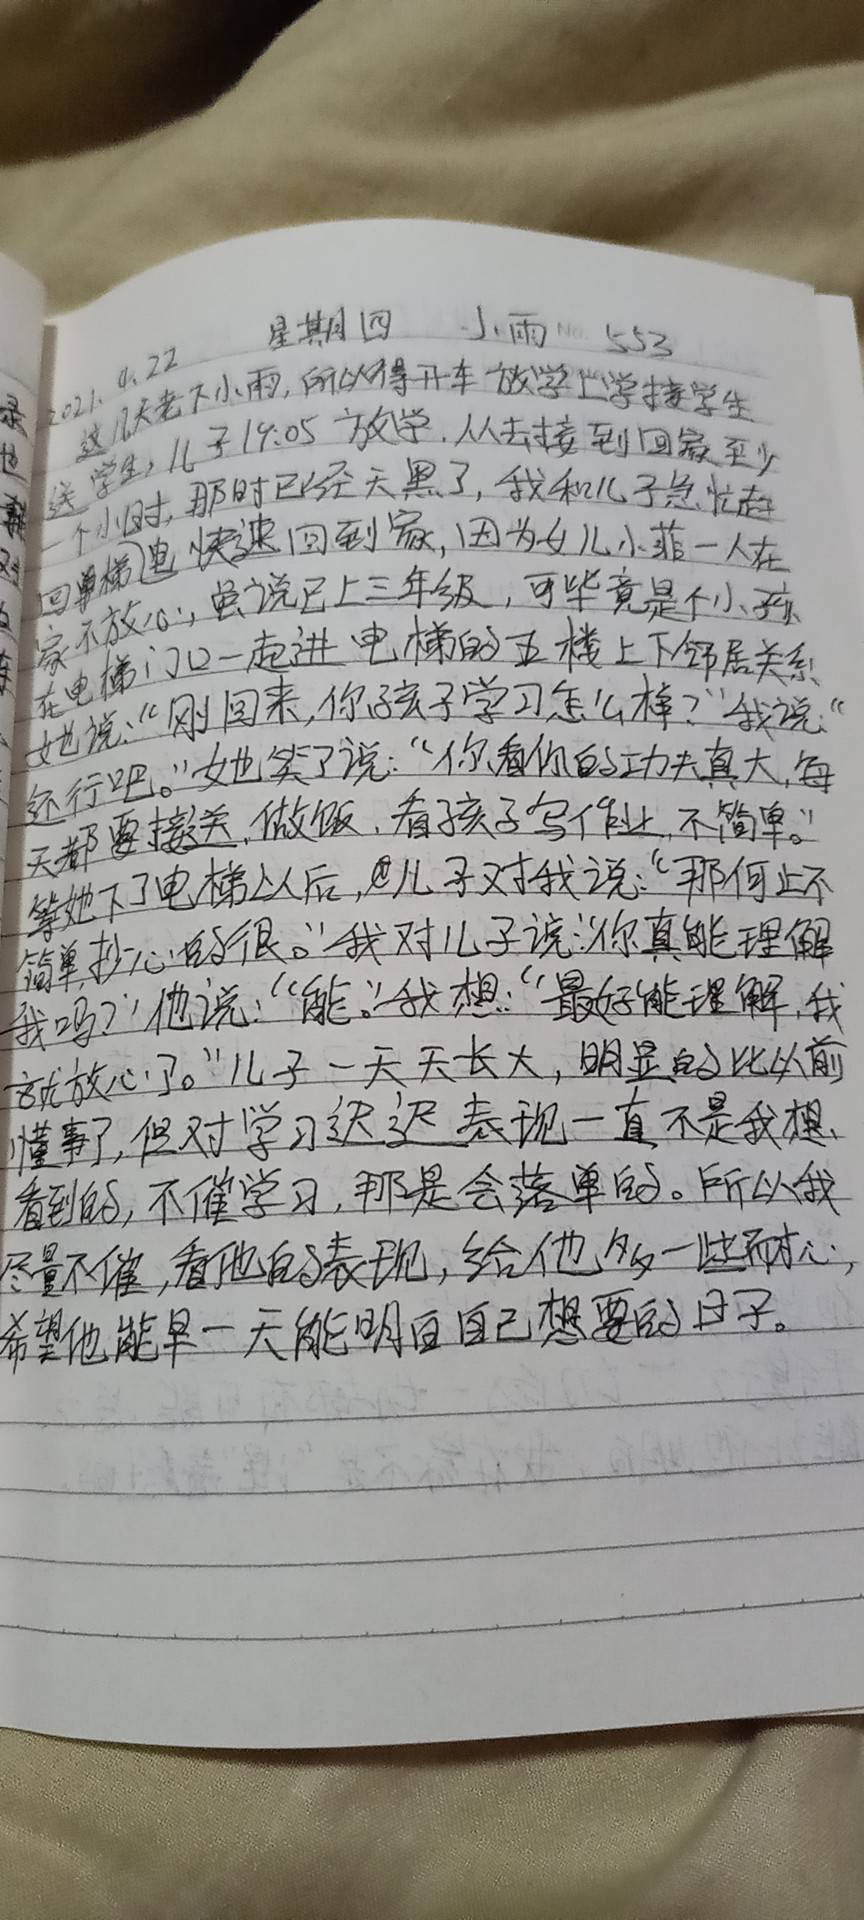 2021.4.22 星期四 小雨 No. 553
这几天老下小雨,所以得开车放学上学接学生
送学生,儿子19:05放学,从去接到回家至少
一个小时,那时已经天黑了,我和儿子急忙赶
回单梯电快速回到家,因为女儿小菲一人在
家不放心,虽说已上三年级,可毕竟是个小孩
在电梯门口一起进电梯的五楼上下邻居关系
她说:“刚回来,你孩子学习怎么样?”我说:“
还行吧。”她笑了说:“你看你的功夫真大,每
天都要接送,做饭,看孩子写作业,不简单。”
等她下了电梯以后,儿子对我说:“那何止不
简单,抄心的很。”我对儿子说:“你真能理解
我吗?”他说:“能。”我想:“最好能理解,我
就放心了。”儿子一天天长大,明显的比以前
懂事了,但对学习迟迟表现一直不是我想
看到的,不催学习,那是会落单的。所以我
尽量不催,看他的表现,给他多一些耐心,
希望他能早一天能明白自己想要的日子。